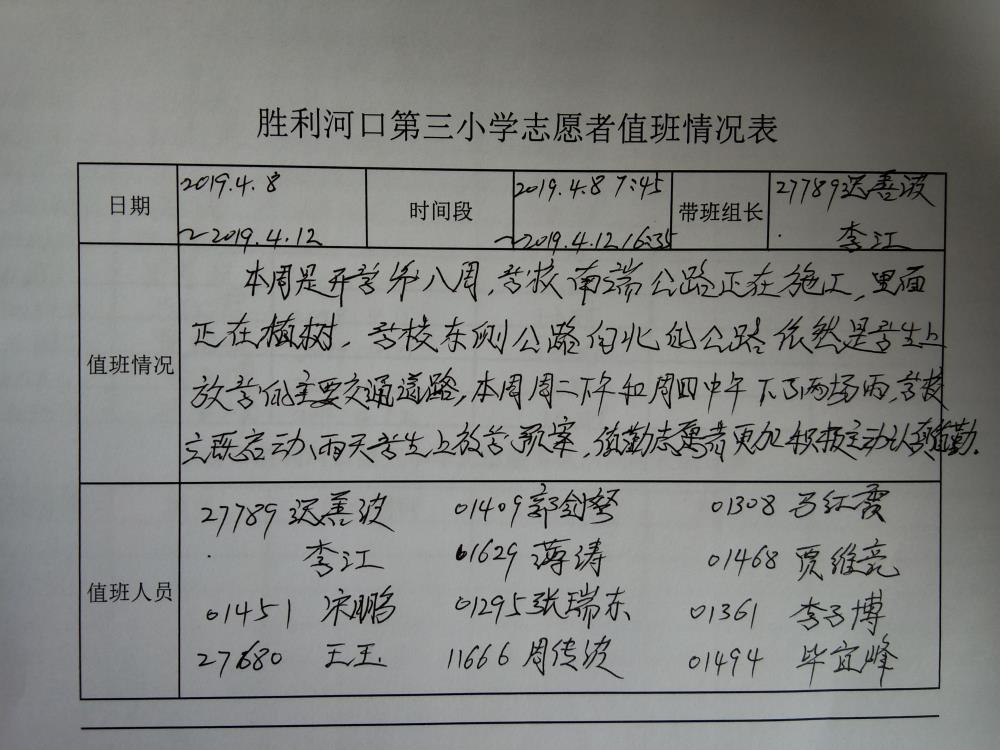 胜利河口第三小学志愿者值班情况表
日期 2019.4.8 ~2019.4.12 时间段 2019.4.8 7:45 ~2019.4.12 16:35 带班组长 27789迟善波 李江
值班情况
本周是开学第八周,学校南端公路正在施工,里面
正在植树,学校东侧公路向北的公路依然是学生上
放学的主要交通道路,本周周二下午和周四中午下了两场雨,学校
立既启动雨天学生上放学预案,值勤志愿者更加积极主动认真值勤.
值班人员
27789 迟善波 01409 郭剑 01308 马红霞
李江 01629 薄涛 01468 贾维亮
01451 宋鹏 01295 张瑞东 01361 李子博
27680 王玉 11666 周传波 01494 毕宜峰